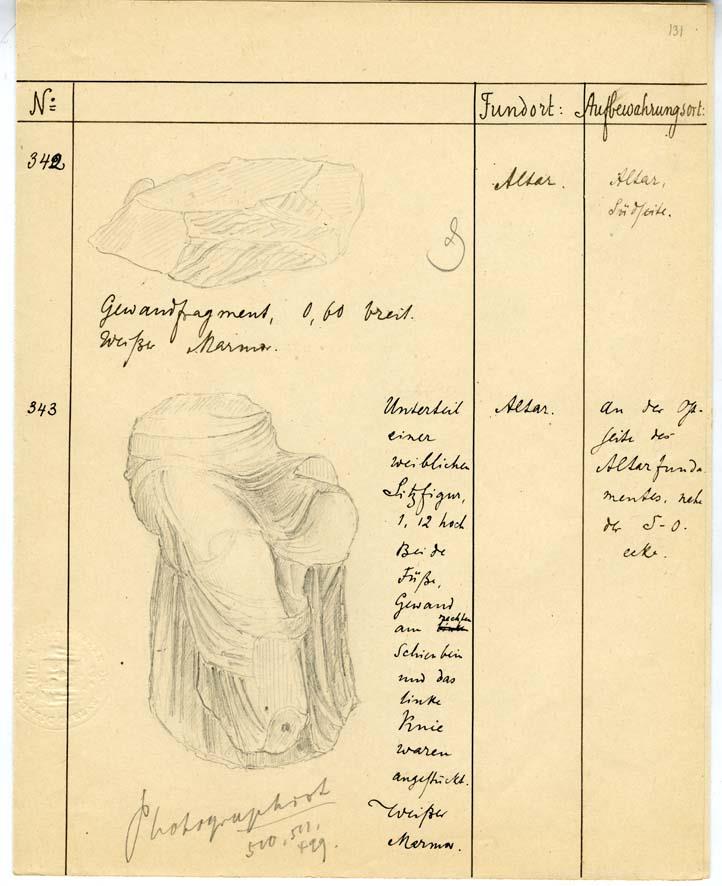 131
No: Fundort: Aufbewahrungsort:
342
Altar.
Altar,
Südseite.
Gewandfragment, 0,60 breit.
Weißer Marmor.
343
Unterteil
einer
weiblichen
Sitzfigur,
1,12 hoch
Beide
Füße,
Gewand
am linke rechten
Schienbein
und das
linke
Knie
waren
angestückt.
Weißer
Marmor.
Altar.
an der Ost-
seite des
Altarfunda-
mentes, nahe
der S-O.
ecke.
Photographirt
510, 511,
499.